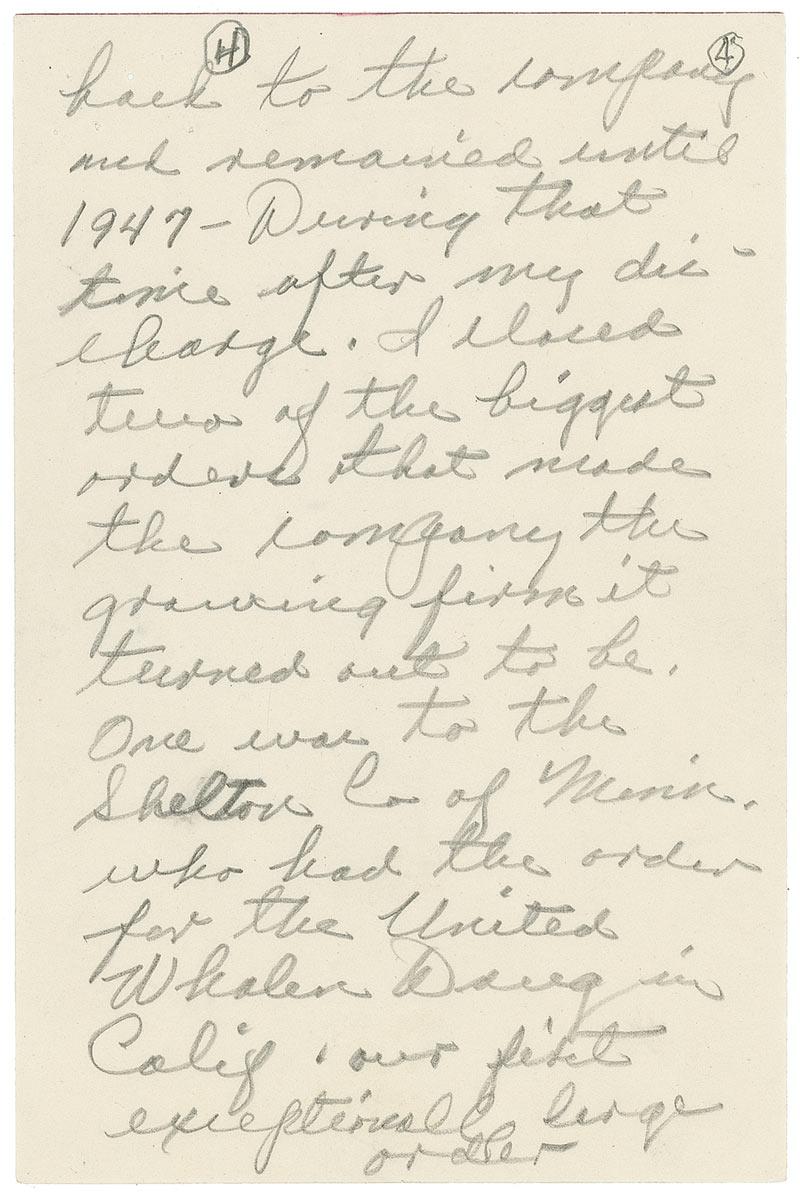 H 4
back to the company
and remained until
1947 - During that
time after my dis -
charge. I closed
two of the biggest
orders that made
the company the
growing firm it
turned out to be.
One was to the
Shelton Co of Minn.
who had the order
for the United
Whalen Drug in
Calif. our first
exceptionally large
order